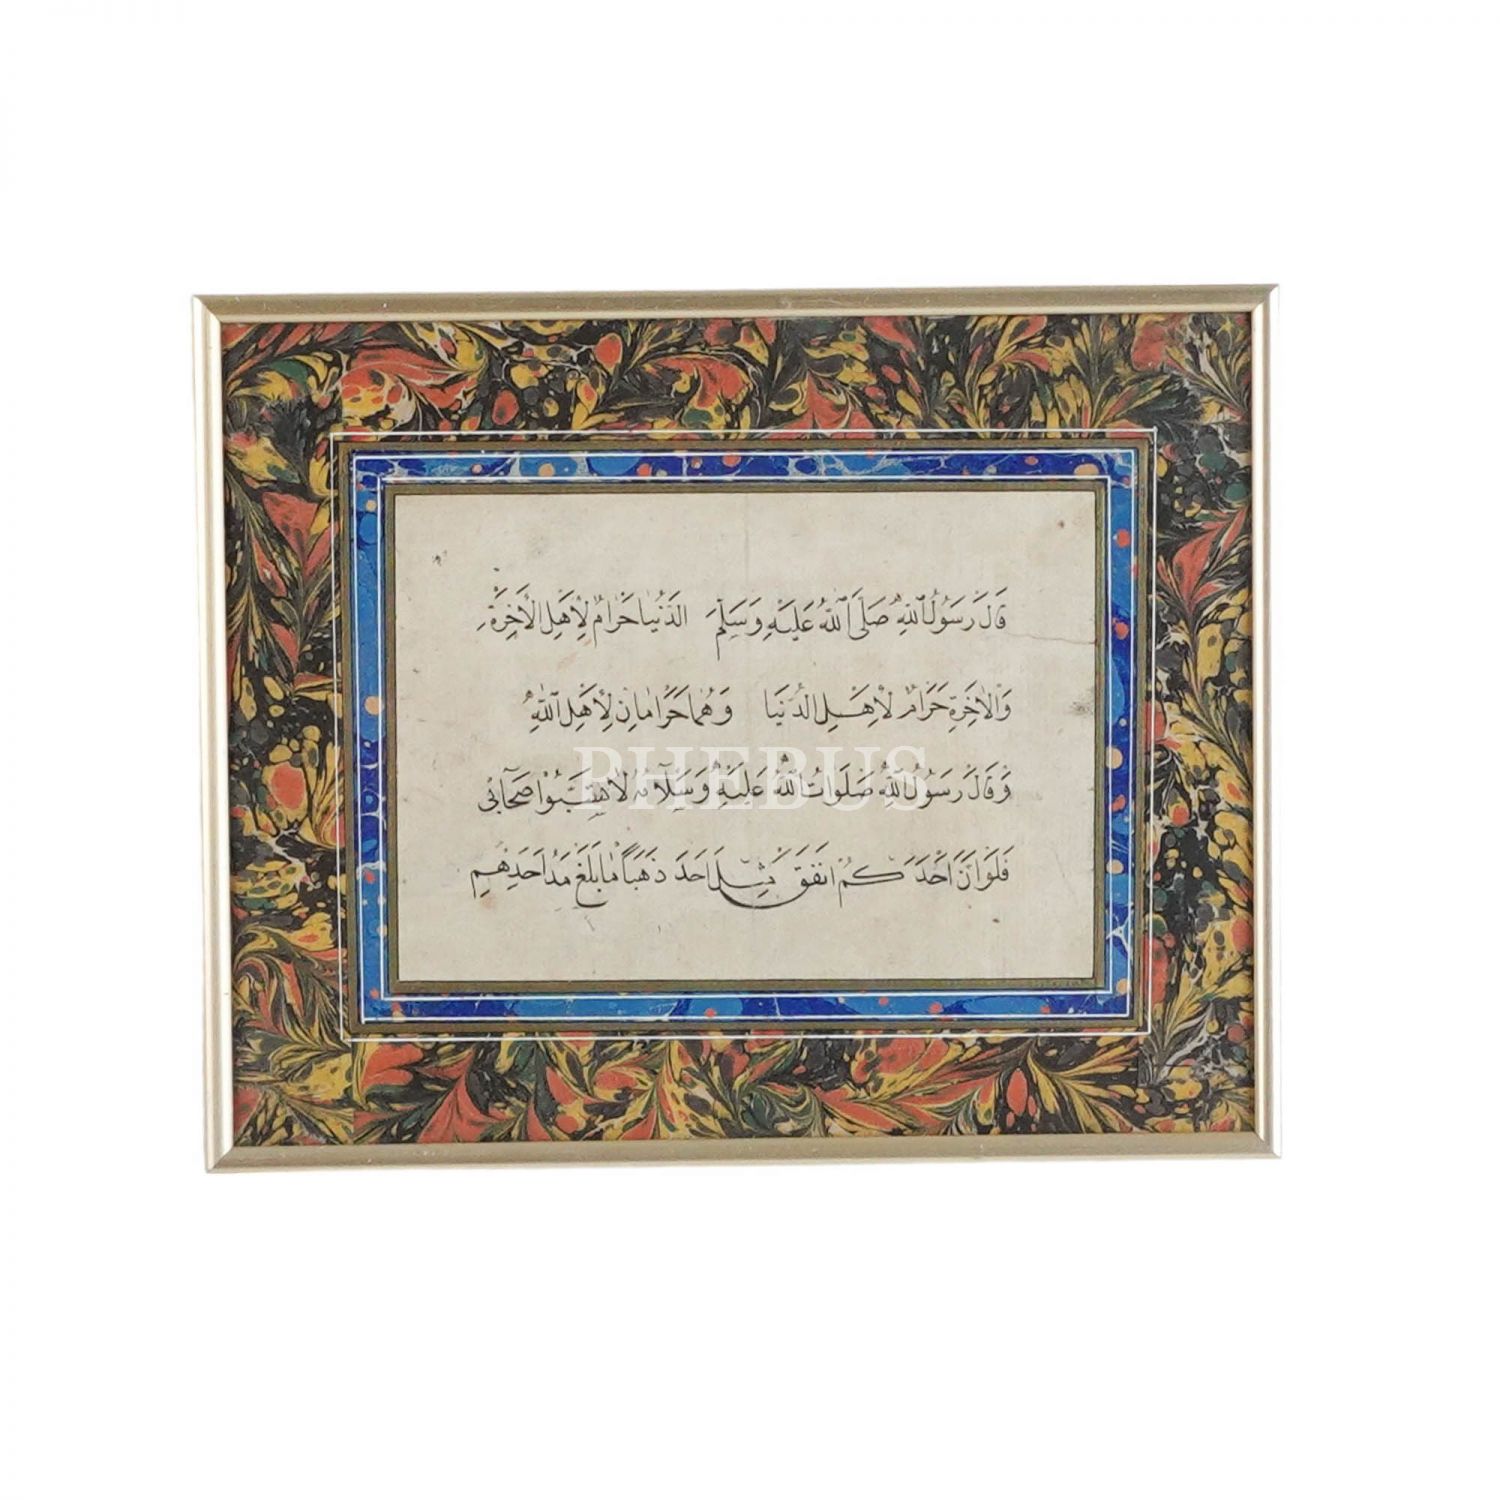 قَالَ رَسُولُ اللهِ صَلَّى اللهُ عَلَيْهِ وَسَلَّمَ الدُّنْيَا حَرَامٌ لِأَهْلِ الْآخِرَةِ
وَالْآخِرَةُ حَرَامٌ لِأَهْلِ الدُّنْيَا وَهُمَا حَرَامَانِ لِأَهْلِ اللهِ
وَقَالَ رَسُولُ اللهِ صَلَوَاتُ اللهِ عَلَيْهِ وَسَلَامُهُ لَا تَسُبُّوا أَصْحَابِي
فَلَوْ أَنَّ أَحَدَكُمْ أَنْفَقَ مِثْلَ أُحُدٍ ذَهَبًا مَا بَلَغَ مُدَّ أَحَدِهِمْ
PHEBUS